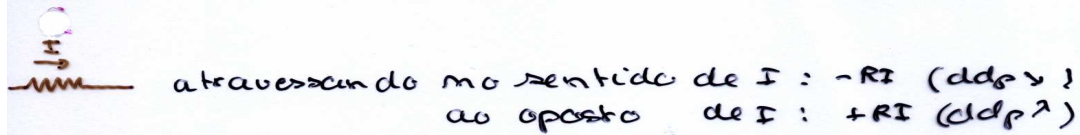 I
atravessando no sentido de I : -RI (ddp ↘)
ao oposto de I : +RI (ddp ↗)